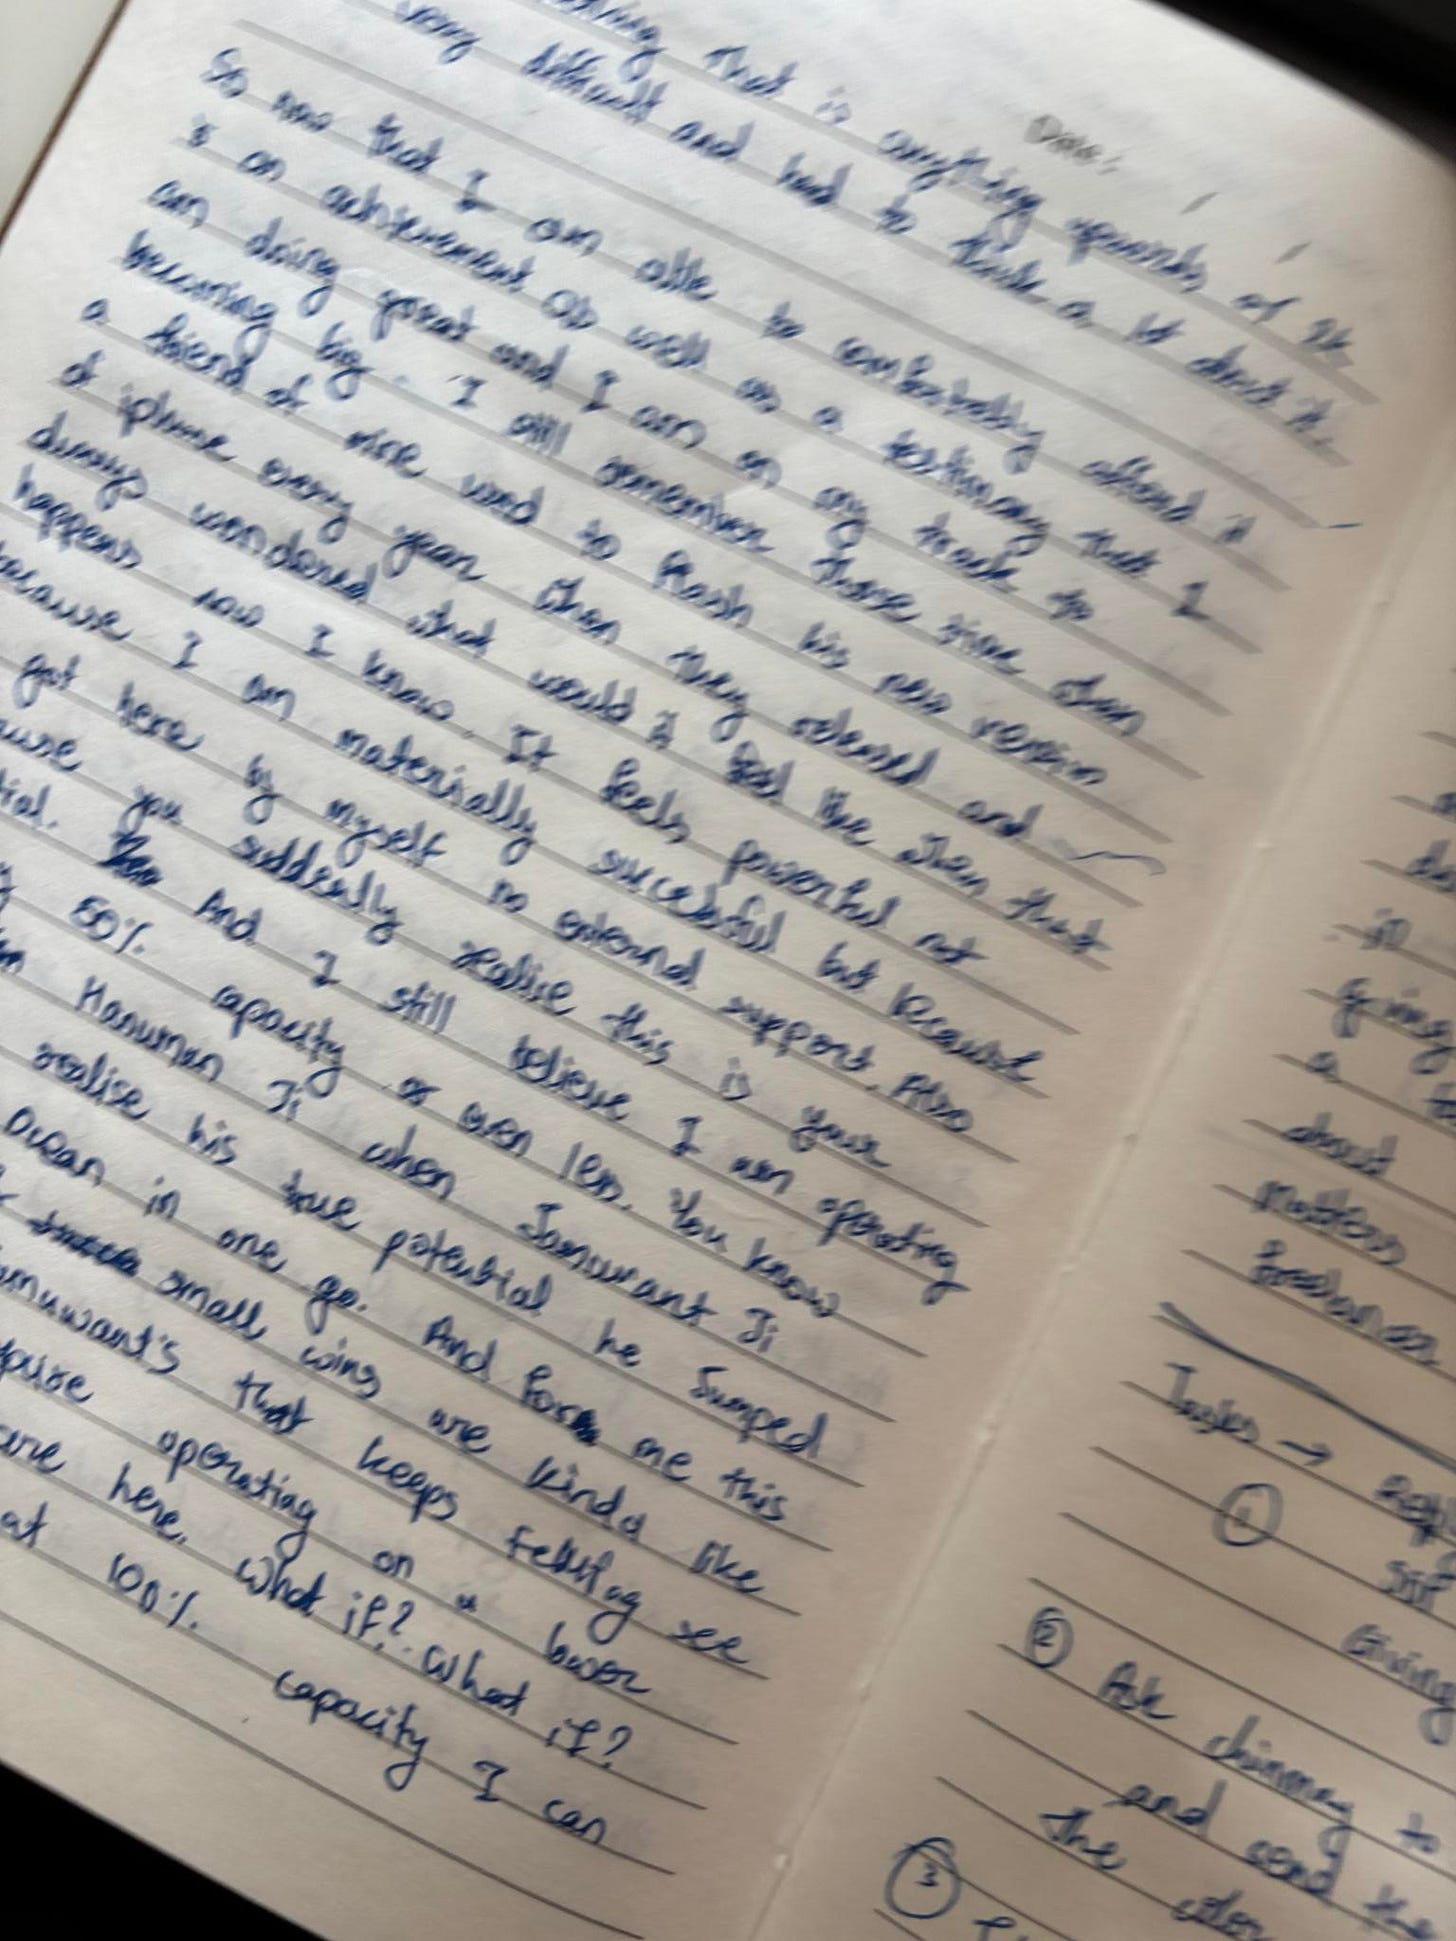 that is anything upwards of 2k
very difficult and had to think a lot about it.
Date:
So now that I am able to comfortably afford it
is an achievement as well as a testimony that I
am doing great and I am on my track to
becoming big. I still remember those time when
a friend of mine used to flash his new version
of iphone every year when they released and
always wondered what would it feel like when that
happens now I know. It feels powerful not
because I am materially successful but because
got here by myself no external support. Also
you suddenly realise this is your
And I still believe I am operating
50% capacity or even less. You know
Hanuman Ji when Jamuwant Ji
realise his true potential he Jumped
Ocean in one go. And for me this
small wins are kinda like
that keeps telling see
operating on a lower
here. What if? What if?
at 100% capacity I can
going
a
about
matters
freelancer
①
②
Ask chinmay to
and send the
the
③